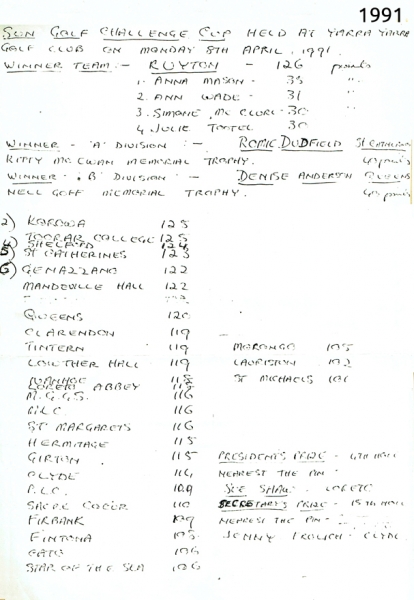 1991
SUN GOLF CHALLENGE CUP HELD AT YARRA YARRA
GOLF CLUB ON MONDAY 8TH APRIL, 1991.
WINNER TEAM:- RUYTON - 126 points
1. ANNA MASON - 35 "
2. ANN WADE - 31 "
3. SIMONE MC CLURE - 30 "
4 JULIE 30
WINNER - 'A' DIVISION :- ROMIE DUDFIELD ST CATHERINES
KITTY MC EWAN MEMORIAL TROPHY. points
WINNER - 'B' DIVISION - DENISE ANDERSON QUEENS
NELL GOFF MEMORIAL TROPHY. points
2) KOROWA 125
TOORAK COLLEGE 125
SHELFORD 124
5) ST CATHERINES 123
6) GENAZZANO 122
MANDEVILLE HALL 122
QUEENS 120
CLARENDON 119
TINTERN 119 MORONGO 105
LOWTHER HALL 119 LAURISTON 102
IVANHOE 118 ST MICHAELS 101
LORETO ABBEY
M.G.G.S. 116
M.L.C 116
ST MARGARETS 116
HERMITAGE 115
GIRTON 115 PRESIDENTS PRIZE - 4TH HOLE
CLYDE 114 NEAREST THE PIN
P.L.C. SUE LORETO
SACRE COEUR 110 SECRETARYS PRIZE - 15TH HOLE
FIRBANK 109 NEAREST THE PIN -
FINTONA JENNY CLYDE
106
STAR OF THE SEA 106